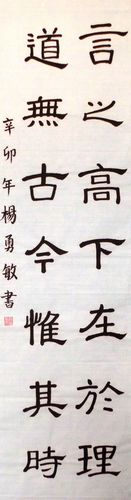 言之高下在於理
道無古今惟其時
辛卯年楊勇敏書